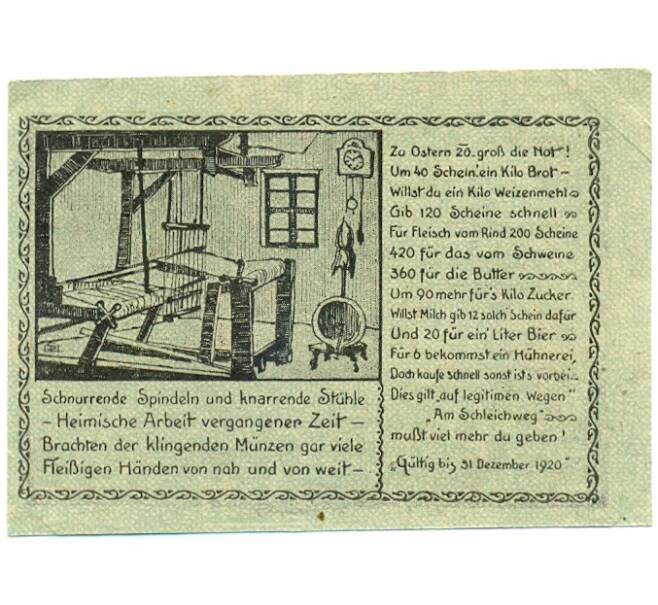 Schnurrende Spindeln und knarrende Stühle
– Heimische Arbeit vergangener Zeit –
Brachten der klingenden Münzen gar viele
Fleißigen Händen von nah und von weit –
Zu Ostern 20 – groß die Not!
Um 40 Schein' ein Kilo Brot –
Willst du ein Kilo Weizenmehl
Gib 120 Scheine schnell
Für Fleisch vom Rind 200 Scheine
420 für das vom Schweine
360 für die Butter
Um 90 mehr für's Kilo Zucker.
Willst Milch gib 12 solch' Schein dafür
Und 20 für ein' Liter Bier
Für 6 bekommst ein Hühnerei,
Doch kaufe schnell sonst ist's vorbei..
Dies gilt „auf legitimen Wegen"
„Am Schleichweg"
mußt viel mehr du geben!
„Gültig bis 31 Dezember 1920"